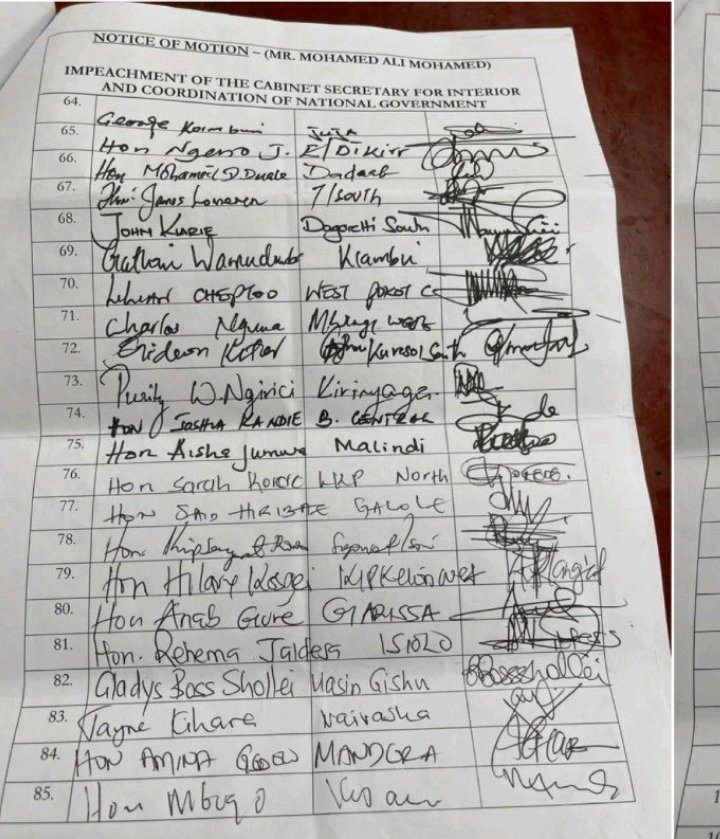 NOTICE OF MOTION – (MR. MOHAMED ALI MOHAMED)
IMPEACHMENT OF THE CABINET SECRETARY FOR INTERIOR
AND COORDINATION OF NATIONAL GOVERNMENT
64. George Koimburi Juja
65. Hon Ngeno J. E/Dikirr
66. Hon Mohamed D Duale Dadaab
67. Hon: James Lomenen T/South
68. JOHN KIARIE Dagoretti South
69. Gathoni Wamuchomba Kiambu
70. Lilian CHEPTOO WEST POKOT C
71. Charles Nguna Mwingi West
72. Gideon Kuresoi South
73. Purity W. Ngirici Kirinyaga
74. HON JOSHUA KANDIE B. CENTRAL
75. Hon Aisha Jumwa Malindi
76. Hon Sarah Korere LKP North
77. HON SAID HIRIBAE GALOLE
78. Hon.
79. Hon Hilary Kosgei KIPKelion West
80. Hon Anab Gure GARISSA
81. Hon. Rehema Jaldesa ISIOLO
82. Gladys Boss Shollei Uasin Gishu
83. Jayne Kihara Naivasha
84. HON AMINA GEDOW MANDERA
85. Hon Mbugo